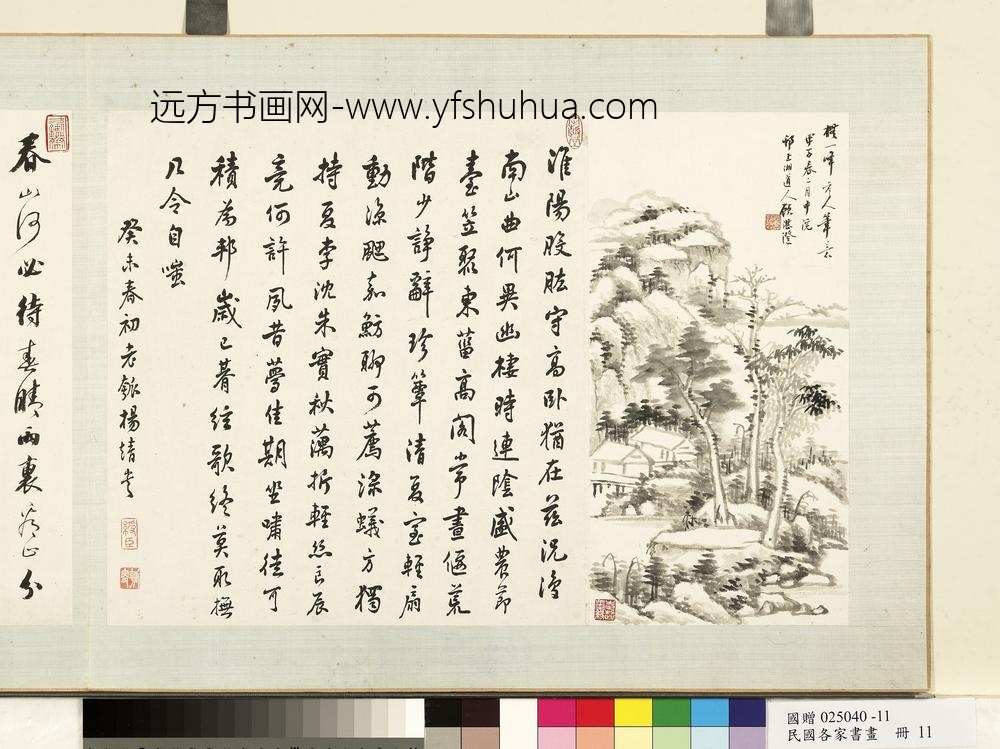 远方书画网-www.yfshuhua.com
橅一峯老人筆意
甲子春二月中浣
邗上湘道人顧澄
淮陽股肱守高臥猶在茲況復
南山曲何異幽棲時連陰盛農節
臺笠聚東菑高閣常晝偃荒
階少諍辭珍簟清夏室輕扇
動涼颸嘉魴聊可薦淥蟻方獨
持夏李沈朱實秋藕折輕絲良辰
竟何許夙昔夢佳期坐嘯徒可
積為邦歲已朞絃歌終莫取撫
几令自嗤
癸未春初老銀楊靖
春山何必待春晴雨裏看山分
國贈 025040 -11
民國各家書畫 冊 11